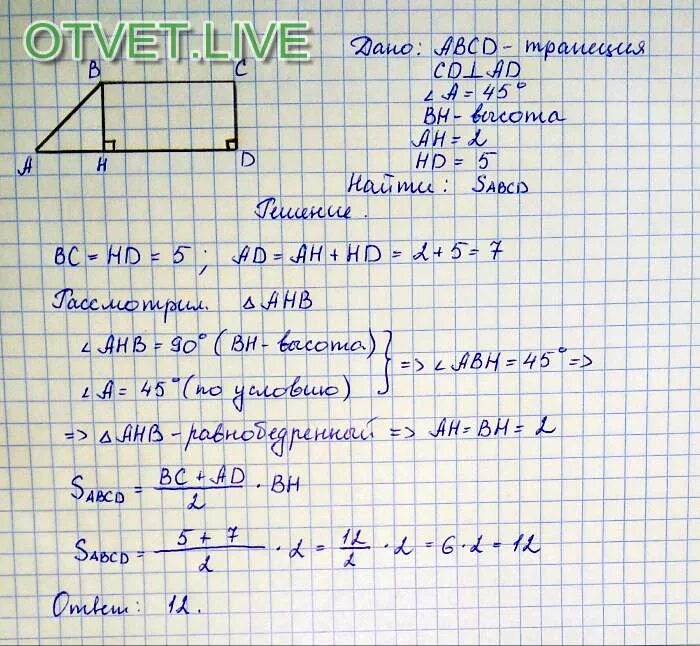 OTVET.LIVE
Дано: ABCD - трапеция
CD⊥AD
∠A = 45°
BH - высота
AH = 2
HD = 5
Найти: SABCD
B C
A H D
Решение.
BC = HD = 5 ; AD = AH + HD = 2 + 5 = 7
Рассмотрим △AHB
∠AHB = 90° (BH - высота)
∠A = 45° (по условию) } => ∠ABH = 45° =>
=> △AHB - равнобедренный => AH = BH = 2
SABCD = (BC + AD)/2 · BH
SABCD = (5 + 7)/2 · 2 = 12/2 · 2 = 6 · 2 = 12
Ответ: 12.